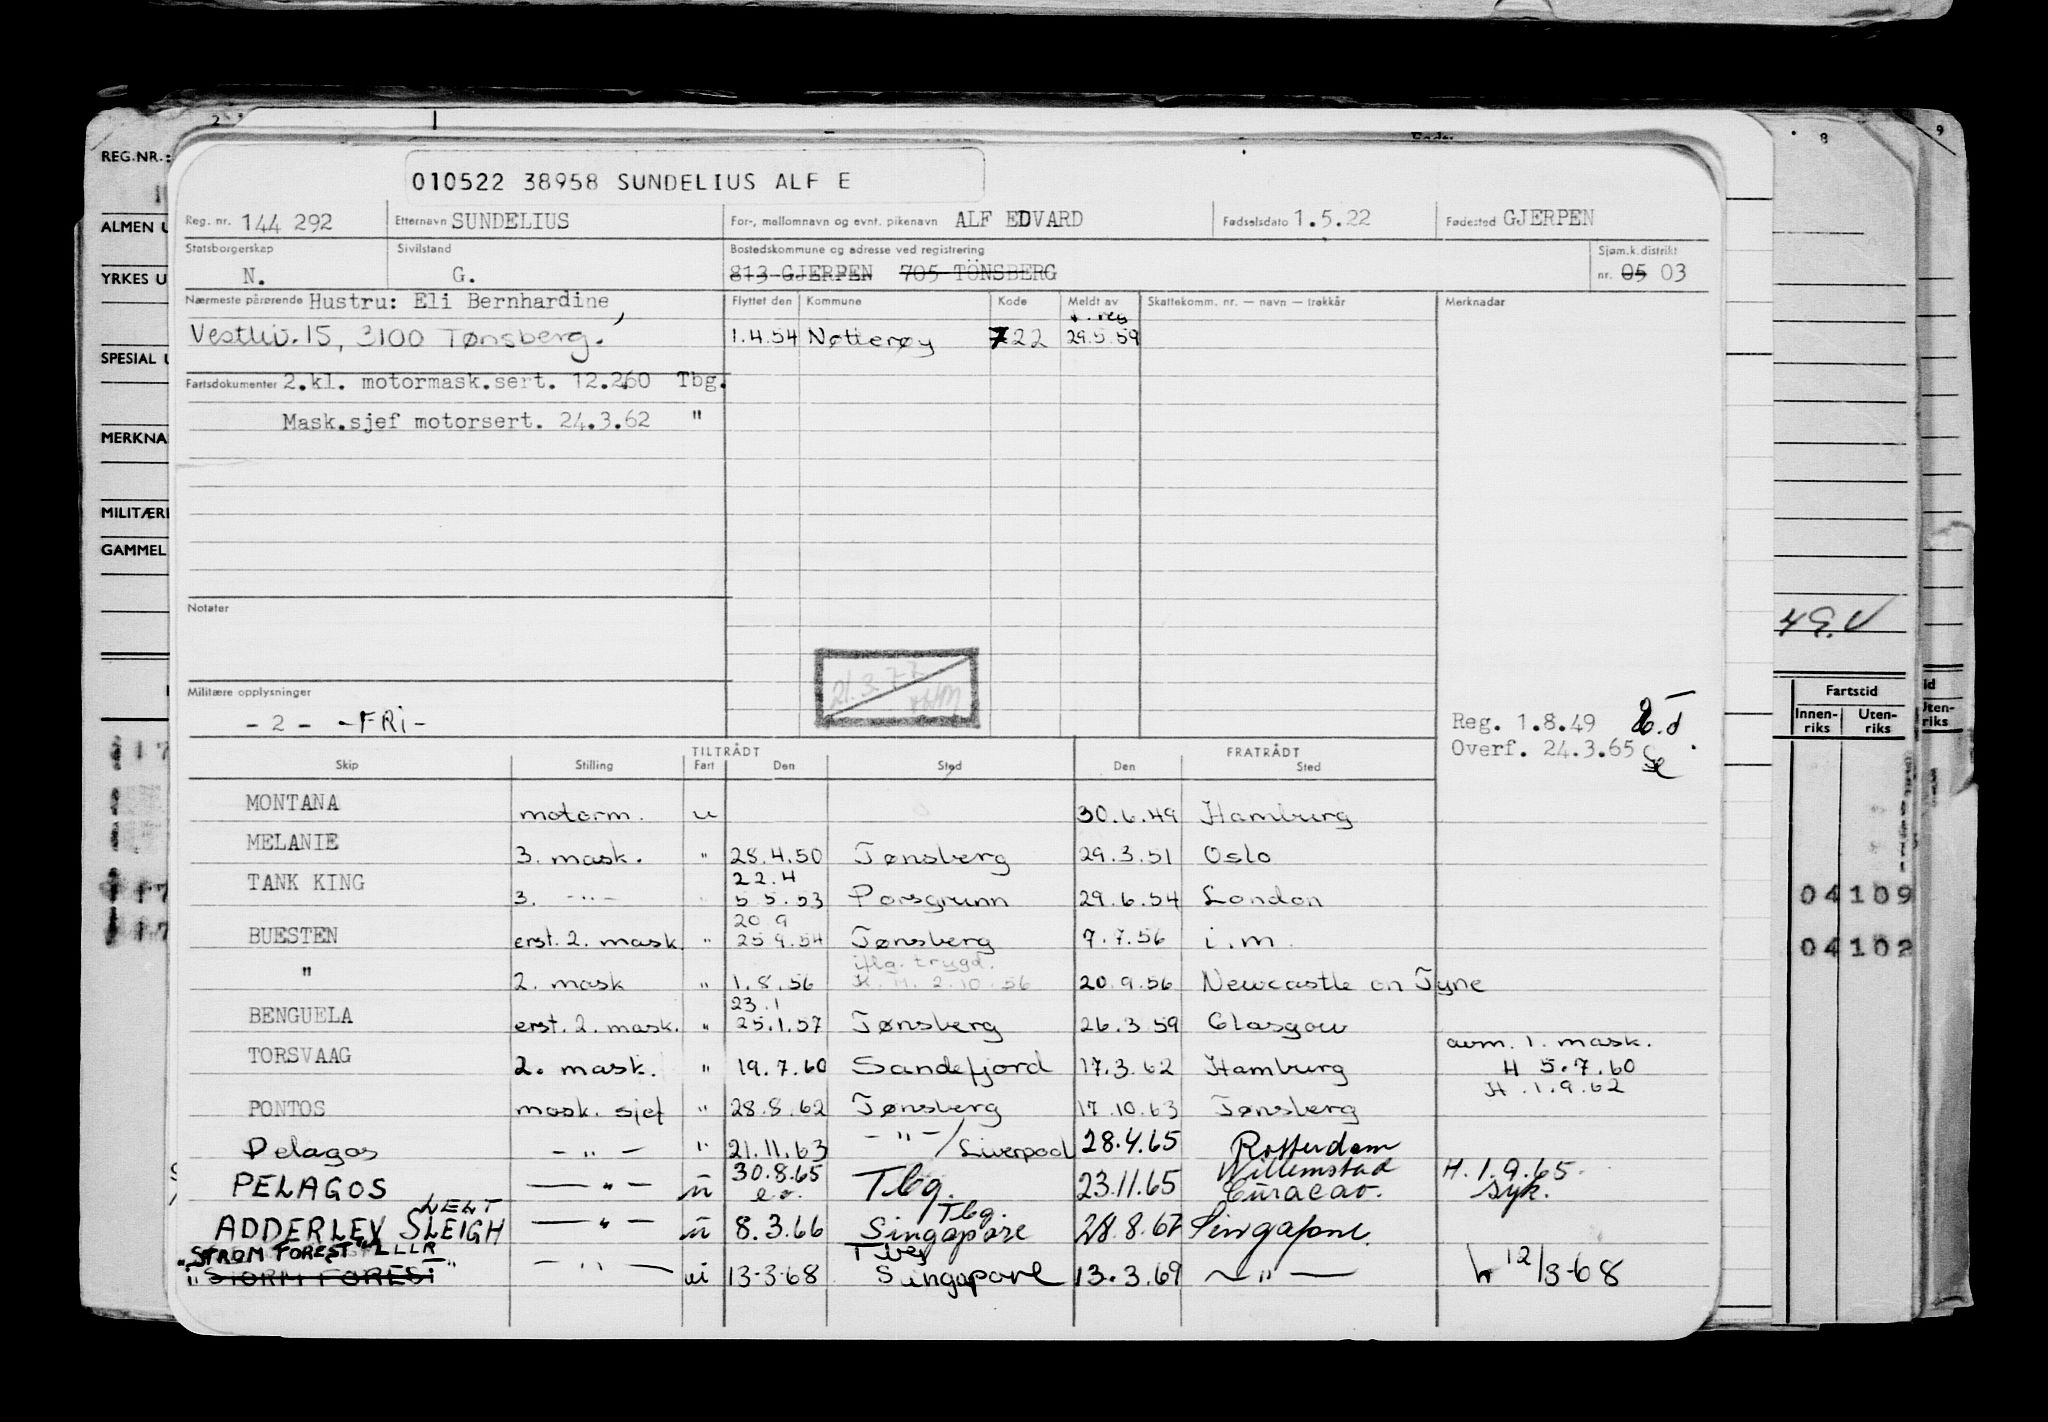 REG.NR.:
ALMEN U
YRKES U
SPESIAL U
MERKNA
MILITÆRE
GAMMEL
2
8
9
49.V
Fartstid
Innen-riks Uten-riks
04109
04102
010522 38958 SUNDELIUS ALF E
Reg. nr. 144 292 Etternavn SUNDELIUS For-, mellomnavn og evnt. pikenavn ALF EDVARD Fødselsdato 1.5.22 Fødested GJERPEN
Statsborgerskap Sivilstand Bostedskommune og adresse ved registrering Sjøm.k.distrikt
N. G. 813 GJERPEN 705 TÖNSBERG nr. 05 03
Nærmeste pårørende Hustru: Eli Bernhardine, Flyttet den Kommune Kode Meldt av Skattekomm. nr. — navn — trekkår Merknader
Vestliv. 15, 3100 Tønsberg. 1.4.54 Nøtterøy 722 f. reg 29.5.59
Fartsdokumenter 2.kl. motormask.sert. 12.2.60 Tbg.
Mask.sjef motorsert. 24.3.62 "
Notater
21.3.77
Militære opplysninger
- 2 - -FRi-
Reg. 1.8.49
Overf. 24.3.65
TILTRÅDT FRATRÅDT
Skip Stilling Fart Den Sted Den Sted
MONTANA motorm. u 30.6.49 Hamburg
MELANIE 3. mask. " 28.4.50 Tønsberg 29.3.51 Oslo
22.4
TANK KING 3. -"- " 5.5.53 Porsgrunn 29.6.54 London
20 9
BUESTEN erst. 2. mask. " 25 9.54 Tønsberg 7.7.56 i.m.
iflg. trygd.
" 2. mask " 1.8.56 H. M. 2.10.56 20.9.56 Newcastle on Tyne
23.1
BENGUELA erst. 2. mask. " 25.1.57 Tønsberg 26.3 59 Glasgow
avm. 1. mask.
TORSVAAG 2. mask. " 19.7.60 Sandefjord 17.3.62 Hamburg H 5.7.60
H .1.9.62
PONTOS mask. sjef " 28.8.62 Tønsberg 17.10.63 Tønsberg
Pelagos - " - " 21.11.63 - " - / Liverpool 28.4.65 Rotterdam
PELAGOS - " - u 30.8.65 Tbg. 23.11.65 Willemstad Curacao. H. 1.9.65. syk.
ADDERLEY SLEIGH - " - u 8.3.66 Tbg. Singapore 28.8.67 Singapore.
"STROM FOREST" LLLR
"STORM FOREST" - " - ui 13-3-68 Tbg Singapore 13.3.69 - " - h 12/3-68